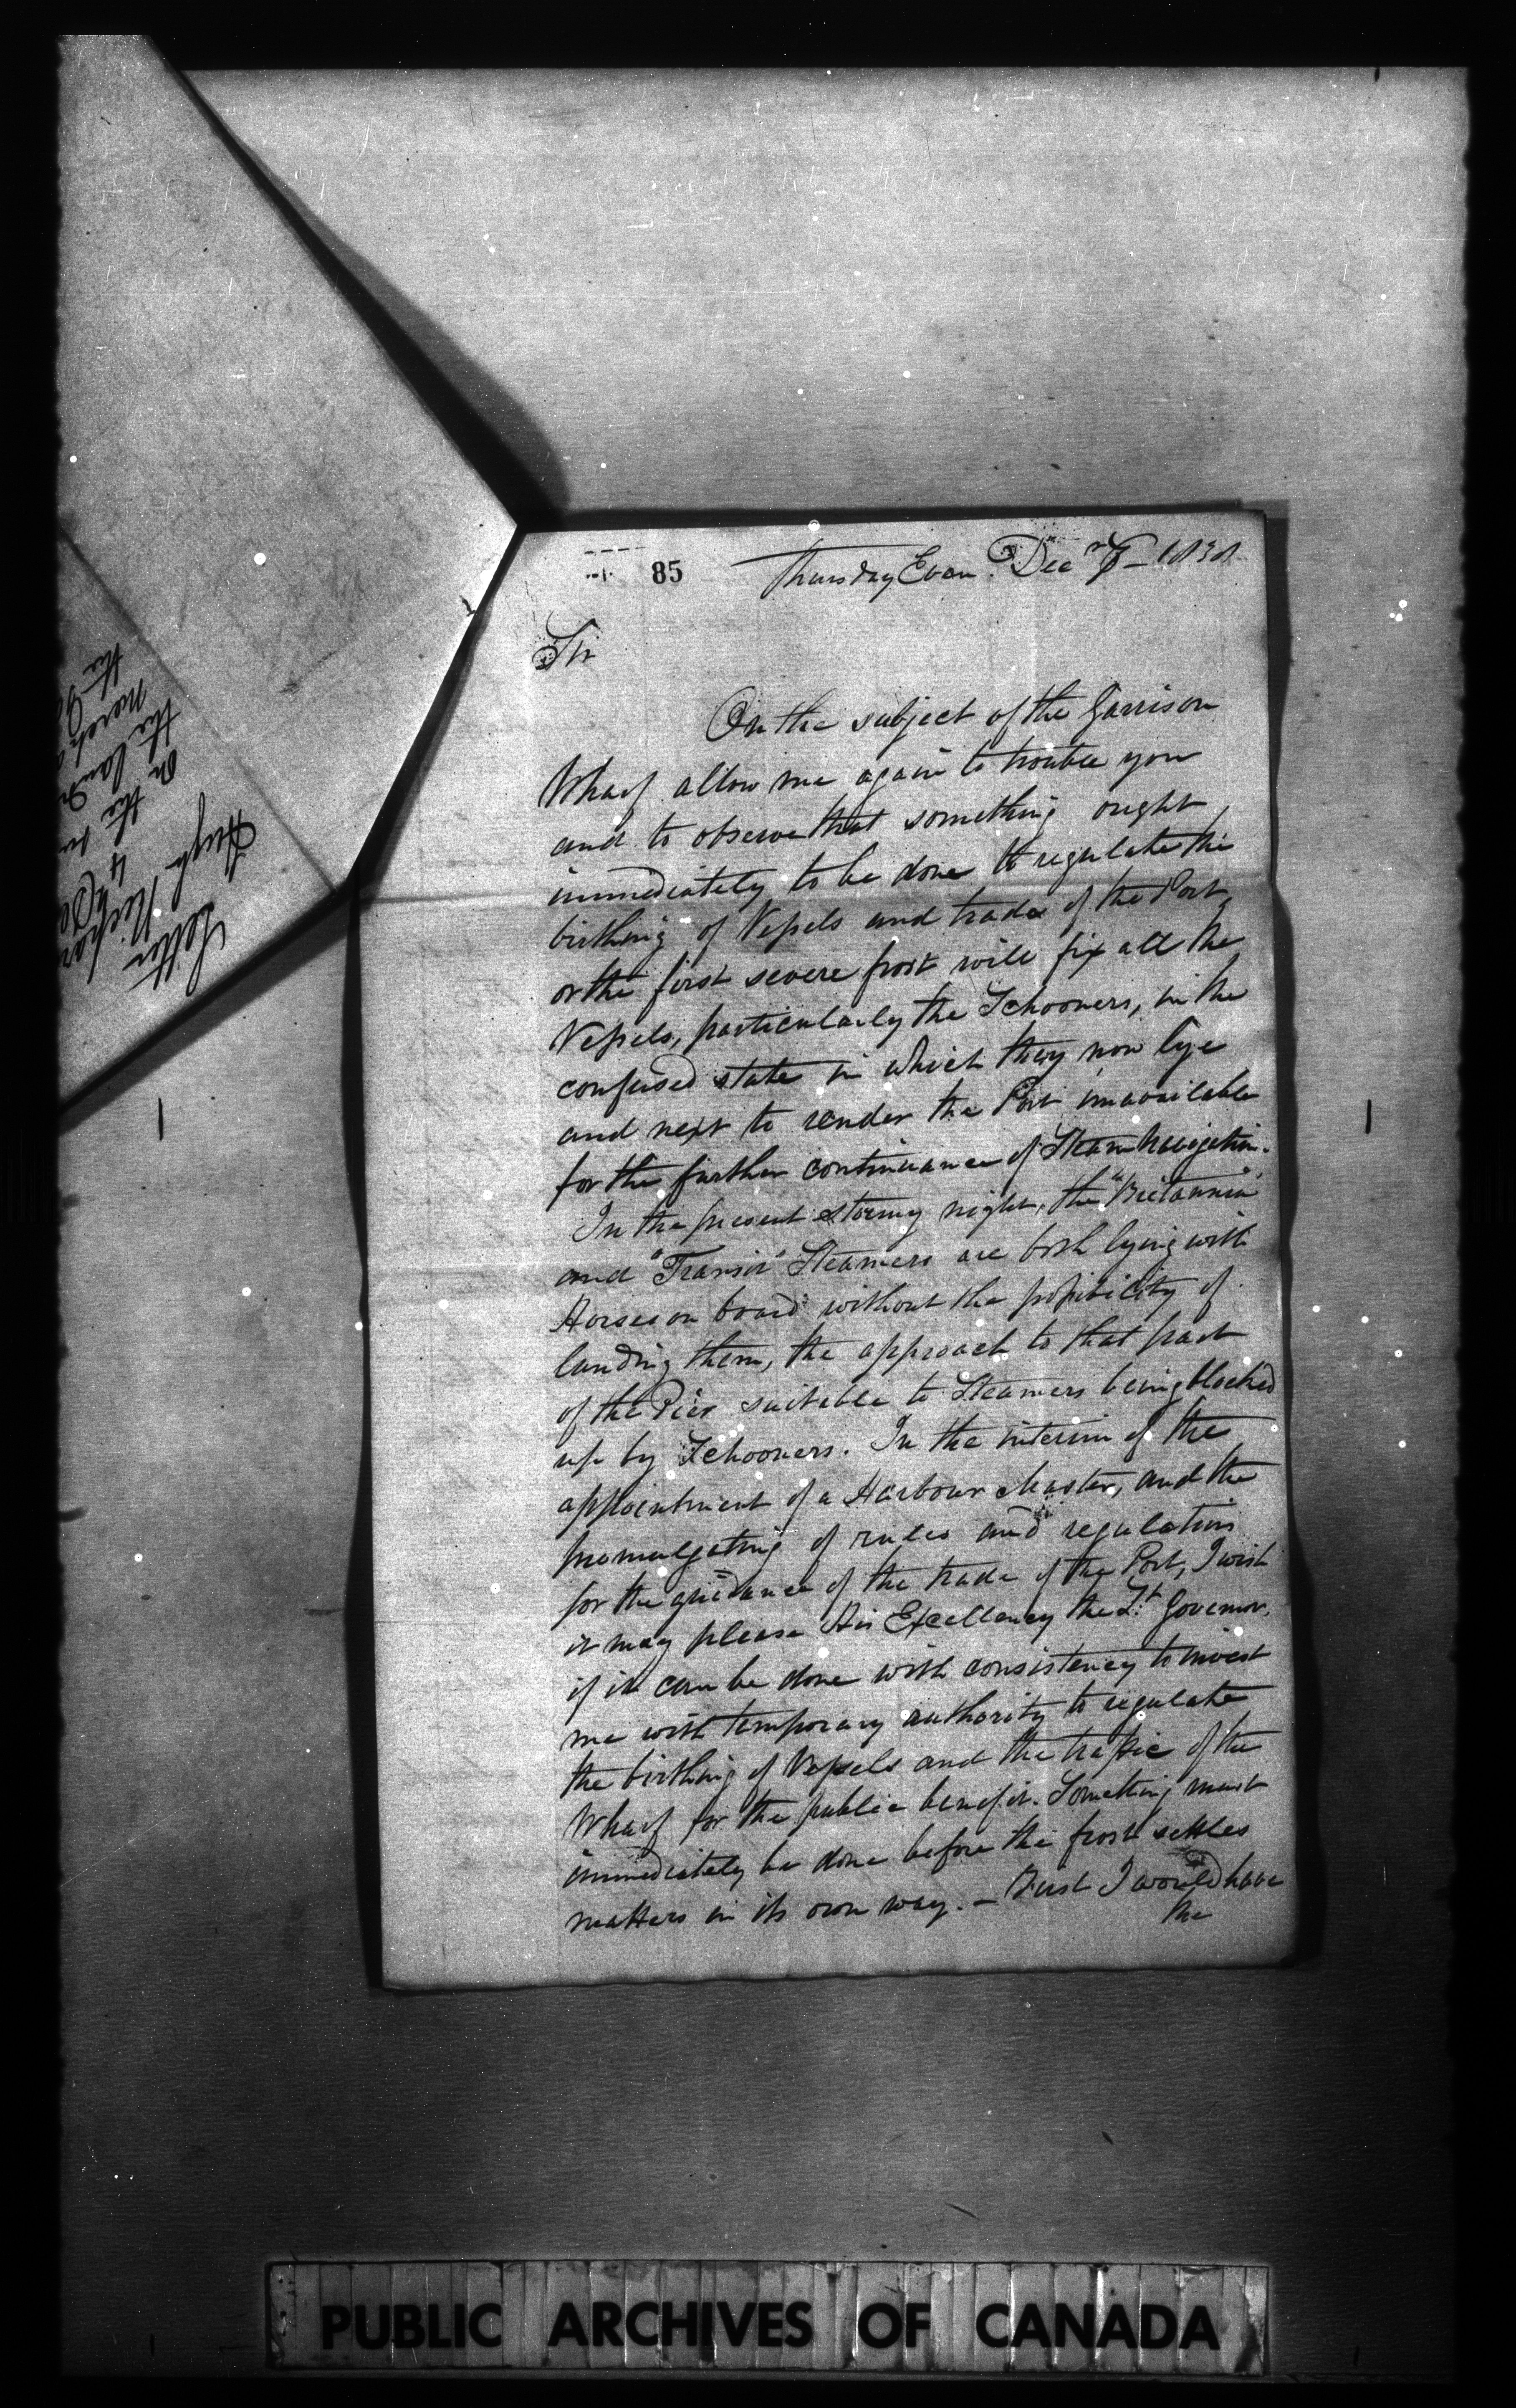 85
Thursday Even. Decr 6 - 1838
Sir
On the subject of the Garrison
Wharf allow me again to trouble you
and to observe that something ought,
immediately to be done to regulate the
birthing of Vessels and trade of the Port,
or the first severe frost will fix all the
Vessels, particularly the Schooners, in the
confused state in which they now lye
and next to render the Port unavailable
for the further continuance of Steam Navigation.
In the present stormy night, the "Britannia"
and "Transit" Steamers are both lying with
Horses on board without the possibility of
landing them, the approach to that part
of the Pier suitable to Steamers being blocked
up by Schooners. In the interim of the
appointment of a Harbour Master, and the
promulgating of rules and regulations
for the guidance of the trade of the Port, I wish
it may please His Excellency the Lt. Governor,
if it can be done with consistency to invest
me with temporary authority to regulate
the birthing of Vessels and the traffic of the
Wharf for the public benefit. Something must
immediately be done before the frost settles
matters in its own way. - First I would have
the
Letter
Hugh Richar
4
on the
the landin
merch
the
PUBLIC ARCHIVES OF CANADA